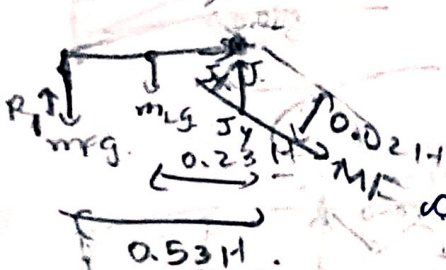 R₁
mfg
mLg
Jy
0.23 H
0.02H
MF
0.53H.